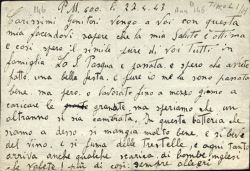 P.M. 500. li 22.4.43
Carissimi genitori Vengo a voi con questa
mia facendovi sapere che la mia salute è ottima
e così spero il simile pure di voi tutti in
famiglia la S. Pasqua è passata e spero che avrete
fatto una bella festa. e pure io me la sono passata
bene. ma però o lavorato fino a mezzo giorno a
caricare le granate, ma speriamo che un
altranno si sia cambiata, In questa batteria che
siamo adesso si mangia molto bene. e si beve
del vino. e si fuma delle trestelle, e ogni tanto
arriva anche qualche scarica di bombe inglesi
che volete! più di così sempre allegri